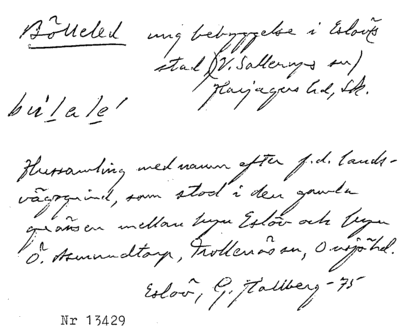 Bölleled ung bebyggelse i Eslövs
stad (V. Sallerups sn)
Harjagers hd, Sk.
Hussamling med namn efter f.d. lands-
vägsgrind, som stod i den gamla
gränsen mellan byn Eslöv och byn
Ö. Asmundtorp, Trollenäs sn, Onsjö hd.
Eslöv, G. Hallberg -75
Nr 13429